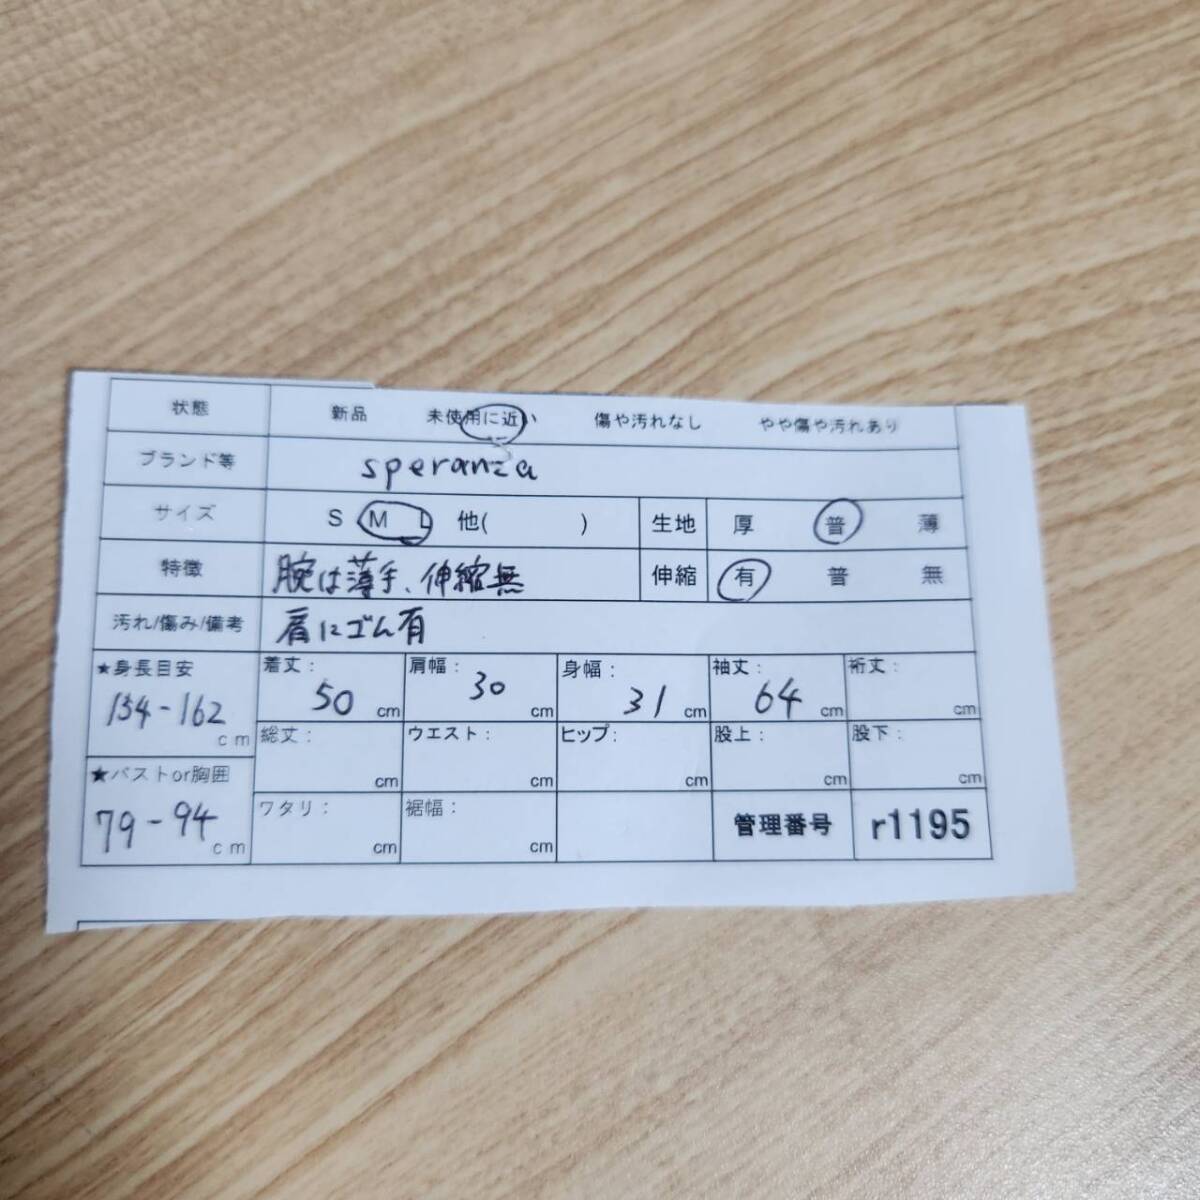 状態 新品 未使用に近い 傷や汚れなし やや傷や汚れあり
ブランド等 speranza
サイズ S M L 他( ) 生地 厚 普 薄
特徴 腕は薄手、伸縮無 伸縮 有 普 無
汚れ/傷み/備考 肩にゴム有
★身長目安 154-162 cm
着丈: 50 cm 肩幅: 30 cm 身幅: 31 cm 袖丈: 64 cm 裄丈: cm
総丈: cm ウエスト: cm ヒップ: cm 股上: cm 股下: cm
★バストor胸囲 79-94 cm
ワタリ: cm 裾幅: cm 管理番号 r1195